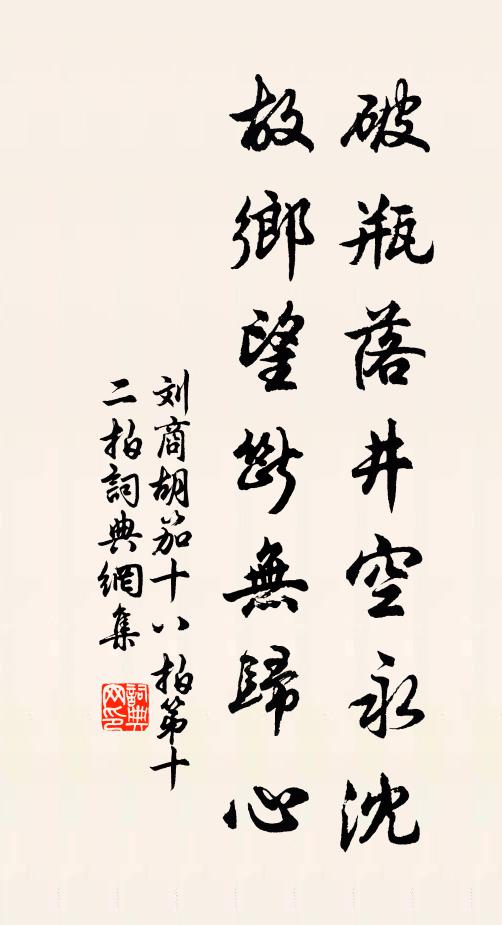 破瓶落井空永沈
故鄉望斷無歸心
刘商胡笳十八拍第十
二拍詞典網集
詞典网印